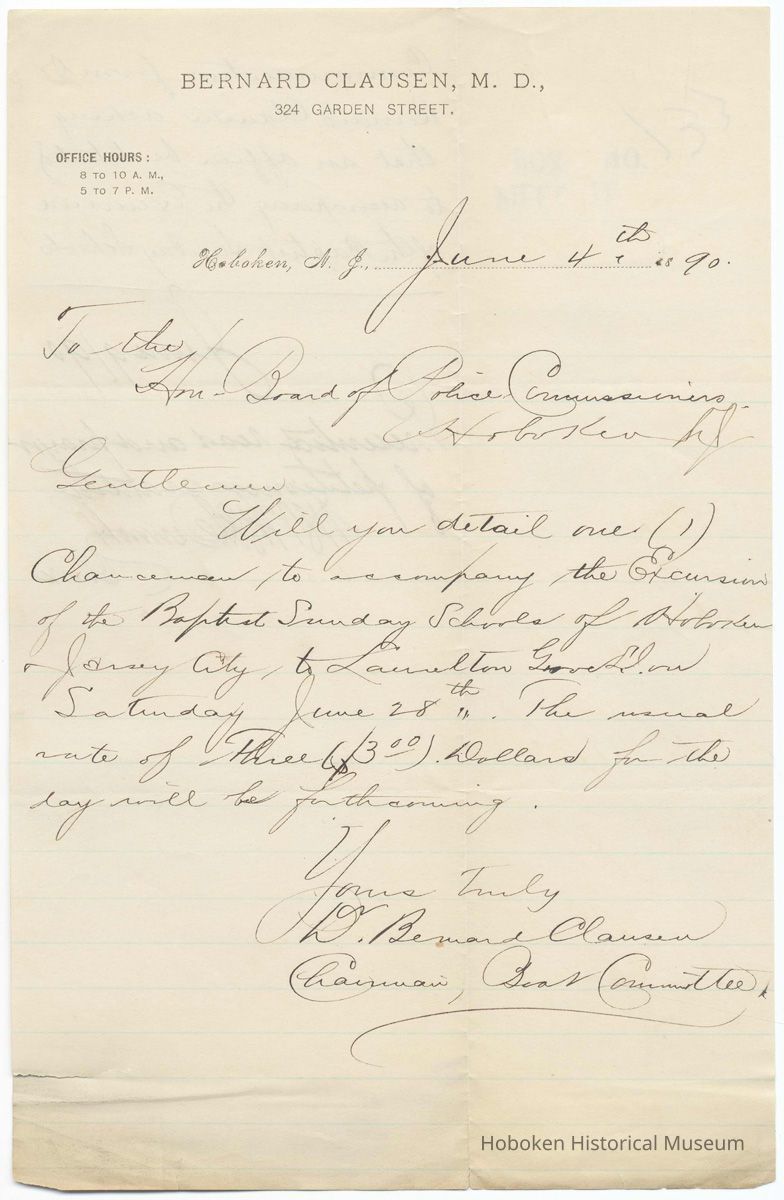 BERNARD CLAUSEN, M. D.,
324 GARDEN STREET.
OFFICE HOURS:
8 TO 10 A. M.,
5 TO 7 P. M.
Hoboken, N. J., June 4th 1890.
To the
Hon- Board of Police Commissioners
Hoboken NJ
Gentlemen
Will you detail one (1)
Chanceman to accompany the Excursion
of the Baptist Sunday Schools of Hoboken
& Jersey City, to Laurelton Grove L.I. on
Saturday June 28th. The usual
rate of Three ($3.00). Dollars for the
day will be forthcoming.
Yours Truly
Dr. Bernard Clausen
Chairman, Boat Committee.
Hoboken Historical Museum